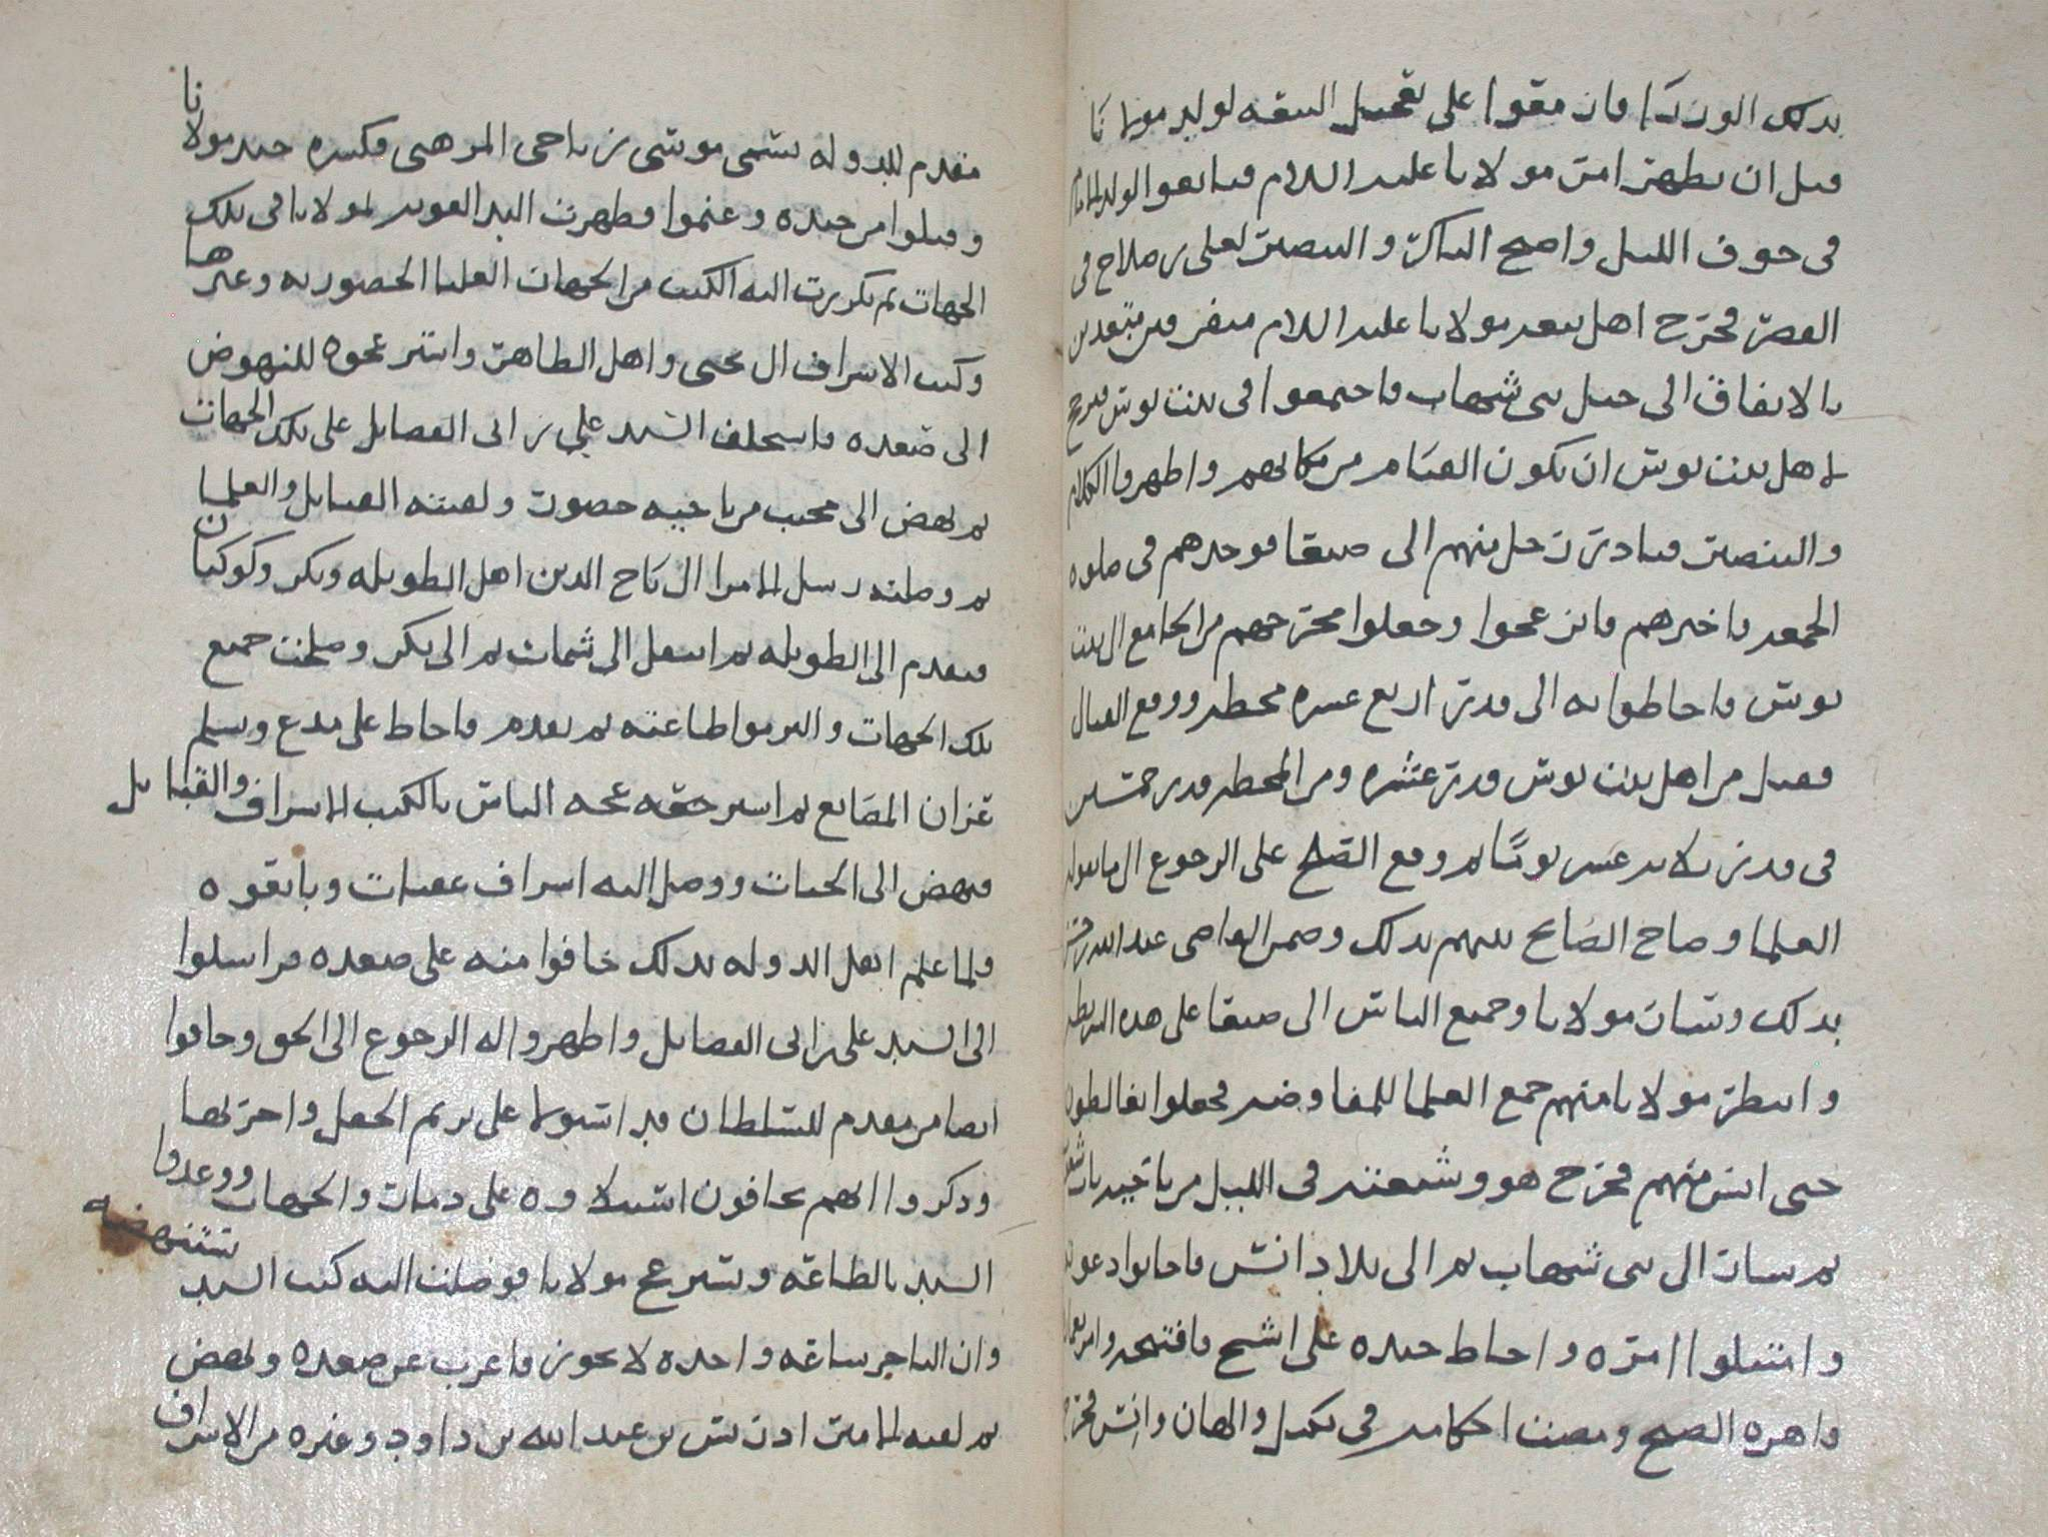 بذلك الوزرا فاتفقوا على تعجيل البيعة لولد مولانا
قبل ان يظهر امر مولانا عليه السلام فبايعوا الولد
في جوف الليل واصبح الباكر والتنصير لعلي بن صلاح في
القصر فخرج اهل بيعة مولانا عليه السلام متفرقين متعدين
بالاتفاق الى جبل بني شهاب فاجتمعوا في بيت بوس فرجح
لاهل بيت بوس ان يكون القيام من مكانهم واظهروا الكلام
والتنصير فبادر رجل منهم الى صنعا فوجدهم في صلوة
الجمعة فاخبرهم فانزعجوا وجعلوا مخرجهم من الجامع الى بيت
بوس فاحاطوا به الى قدر اربع عشرة محطة ووقع القتال
فقتل من اهل بيت بوس قدر عشره ومن المحطة قدر خمسين
في قدر ثلاثة عشر يوما ثم وقع الصلح على الرجوع الى ما يقوله
العلما وصاح الصايح بينهم بذلك وضمن القاضي عبد الله
بذلك وسار مولانا وجميع الناس الى صنعا على هذه
وانتظر مولانا منهم جمع العلما للمفاوضة فجعلوا يغالطون
حتى ايس منهم فخرج هو وشيعته في الليل من ناحية باب
ثم سار الى بني شهاب ثم الى بلاد انس فاجابوا دعوته
وامتثلوا امره واحاط جنده على اشيح فافتتحه
واهره الصيح ومضت احكامه في بكيل والهان وانس
مقدم للدوله يسمى موسى بن ناجي المرهبي فكسره جند مولانا
وقتلوا من جنده وغنموا فظهرت اليد القويه لمولانا في تلك
الجهات ثم تكررت اليه الكتب من الجهات العليا الحضوريه وغيرها
وكتب الاشراف ال يحيى واهل الظاهر واستزعجوه للنهوض
الى صعده فاستخلف السيد علي بن ابي الفضايل على تلك الجهات
ثم نهض الى محيب من ناحيه حضور ولقيته القبايل والعلما
ثم وصلته رسل الامرا ال تاج الدين اهل الطويله وبكر وكوكبان
فتقدم الى الطويله ثم انتقل الى شمات ثم الى بكر وصلحت جميع
تلك الجهات والتزموا طاعته ثم تقدم فاحاط على مدع وتسلم
عزان المصانع ثم استرجعه الناس بالكتب الاشراف والقبايل
فنهض الى الجنات ووصل اليه اشراف عفار وبايعوه
ولما علم اهل الدوله بذلك خافوا منه على صعده فراسلوا
الى السيد علي بن ابي الفضايل واظهروا له الرجوع الى الحق وخافوا
ايضا من مقدم للسلطان قد استولى على بريم الحقل واحربها
وذكروا انهم يخافون استيلاوه على ذمار والجهات ووعدوا
السيد بالطاعه ويسترجع مولانا فوصلت اليه كتب السيد
تستنهضه
وان التاخر ساعه واحده لا يجوز فاعرب عن صعده ونهض
ثم لقيه الامير ادريس بن عبد الله بن داود وغيره من الاشراف